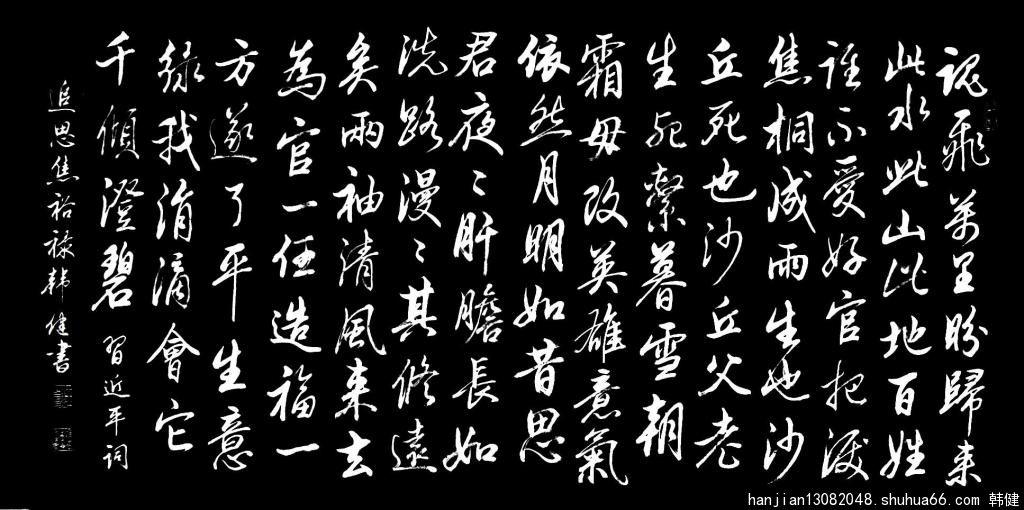 魂飛萬里盼歸来
此水此山此地百姓
誰不愛好官把淚
焦桐成雨生也沙
丘死也沙丘父老
生死繫暮雪朝
霜毋改英雄意氣
依然月明如昔思
君夜〻肝膽長如
洗路漫〻其修遠
矣兩袖清風来去
為官一任造福一
方遂了平生意
绿我涓滴會它
千傾澄碧 習近平詞
追思焦裕禄韩健書
hanjian13082048.shuhua66.com 韩健